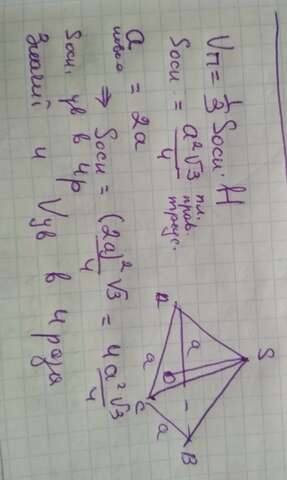 Vп = 1/3 Sосн. H
Sосн. = a²√3/4 пл. прав. треуг.
a = 2a
⇒ Sосн = (2a)²√3/4 = 4a²√3/4
Sосн. ув в 4р
Значит и Vув в 4 раза
S
A
a
a
O
C
a
B